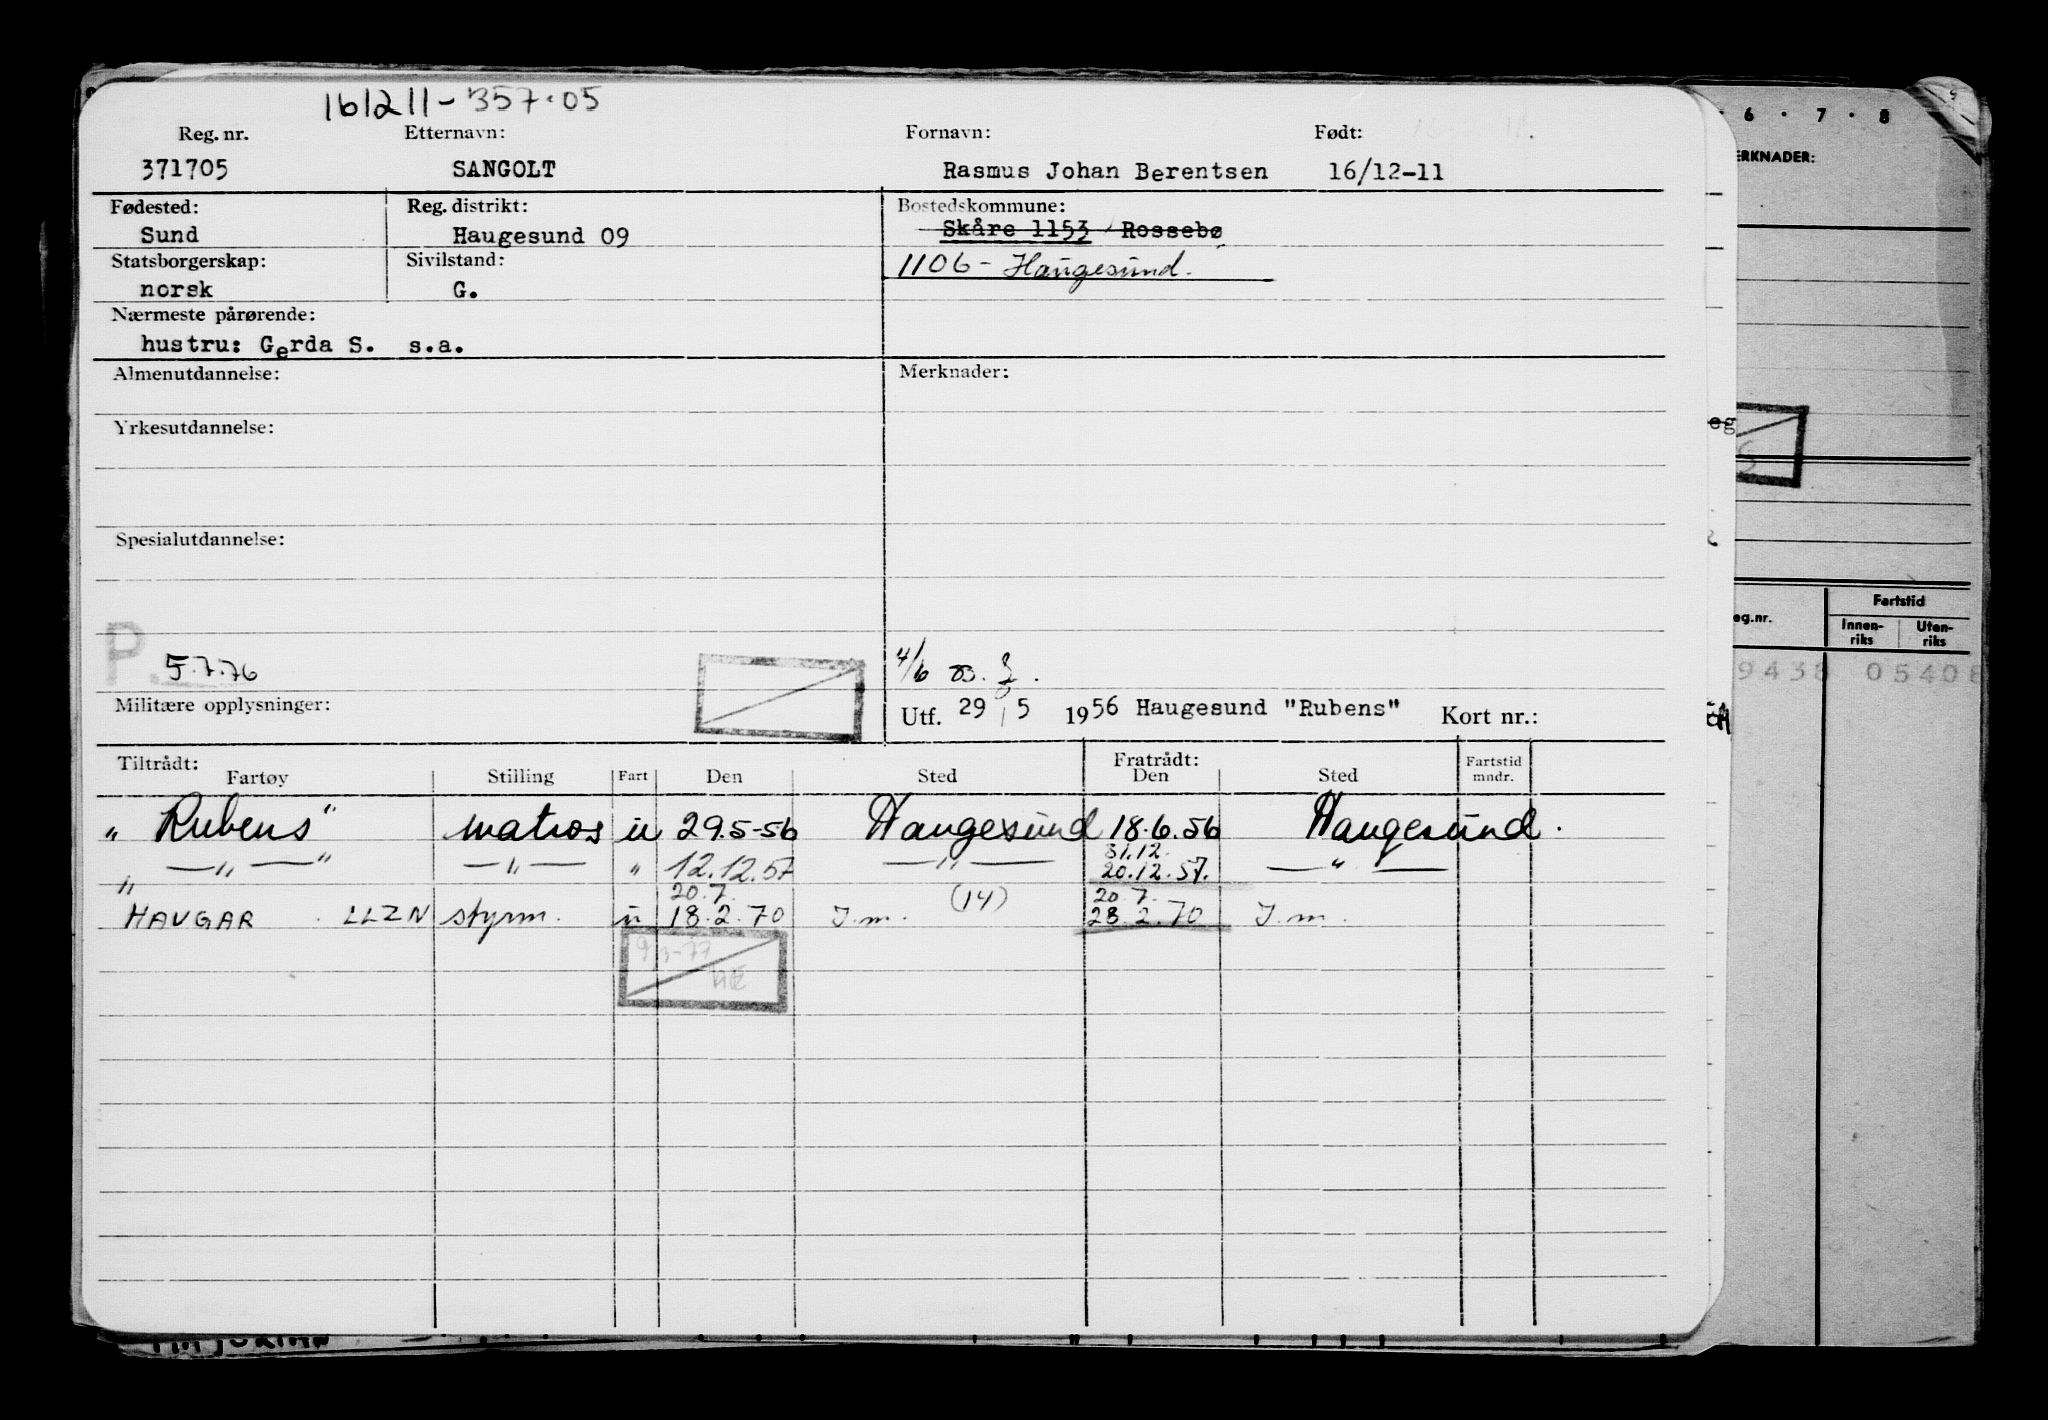 161211-357.05
Reg. nr. Etternavn: Fornavn: Født:
371705 SANGOLT Rasmus Johan Berentsen 16/12-11
Fødested: Reg. distrikt: Bostedskommune:
Sund Haugesund 09 Skåre 1153 Rossebø
Statsborgerskap: Sivilstand: 1106 - Haugesund.
norsk G.
Nærmeste pårørende:
hustru: Gerda S. s.a.
Almenutdannelse: Merknader:
Yrkesutdannelse:
Spesialutdannelse:
P.
5.7.76 4/6
Militære opplysninger: Utf. 29/5 1956 Haugesund "Rubens" Kort nr.:
Tiltrådt: Fratrådt: Fartstid
Fartøy Stilling Fart Den Sted Den Sted mndr.
"Rubens" matros u 29.5-56 Haugesund 18.6.56 Haugesund.
31.12.
" —"—" —"— " 12.12.57 —"— 20.12.57. —"—
20.7. (14) 20.7.
HAUGAR LLZN styrm. u 18.2.70 I.m. 28.2.70 I.m.
9/3-77
6 . 7 . 8
ERKNADER:
eg
eg.nr. Fartstid
Innen-riks Uten-riks
9438 05408